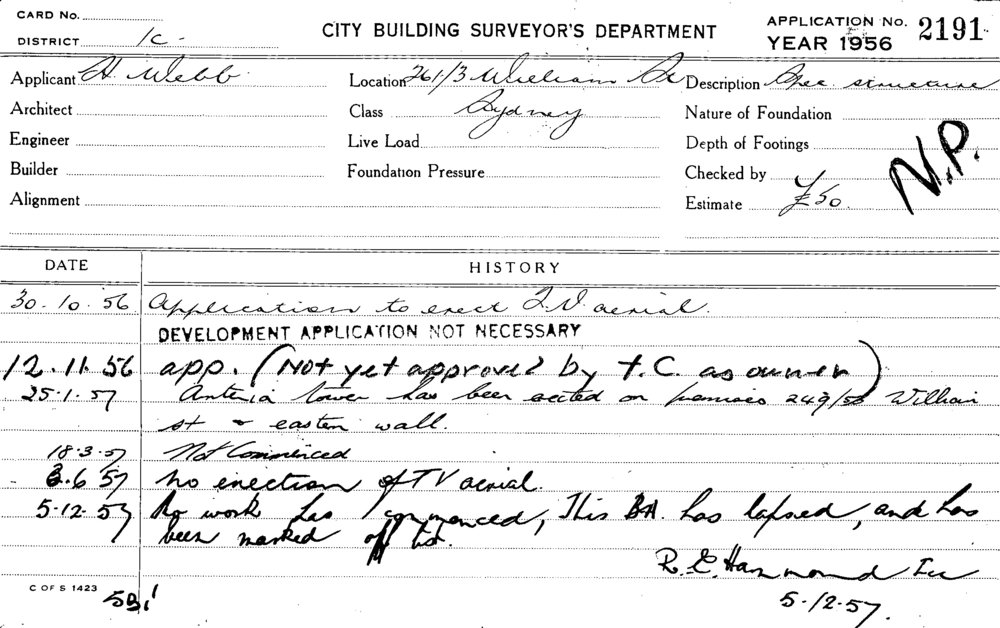 CARD No.
DISTRICT 1c.
CITY BUILDING SURVEYOR'S DEPARTMENT
APPLICATION No. 2191
YEAR 1956
Applicant H. Webb
Location 261/3 William St
Description Spec. structure
Architect
Class Sydney
Nature of Foundation
Engineer
Live Load
Depth of Footings
Builder
Foundation Pressure
Checked by
N.P.
Alignment
Estimate £50.
DATE HISTORY
30.10.56 Application to erect T.V. aerial.
DEVELOPMENT APPLICATION NOT NECESSARY
12.11.56 app. (Not yet approved by T.C. as owner)
25.1.57 Antenna tower has been erected on premises 249/ William
st eastern wall.
18.3.57 Not Commenced
3.6.57 No erection of TV aerial.
5.12.57 No work has commenced, This BA. has lapsed, and has
been marked off list.
R. E. Hammond
5.12.57.
C OF S 1423